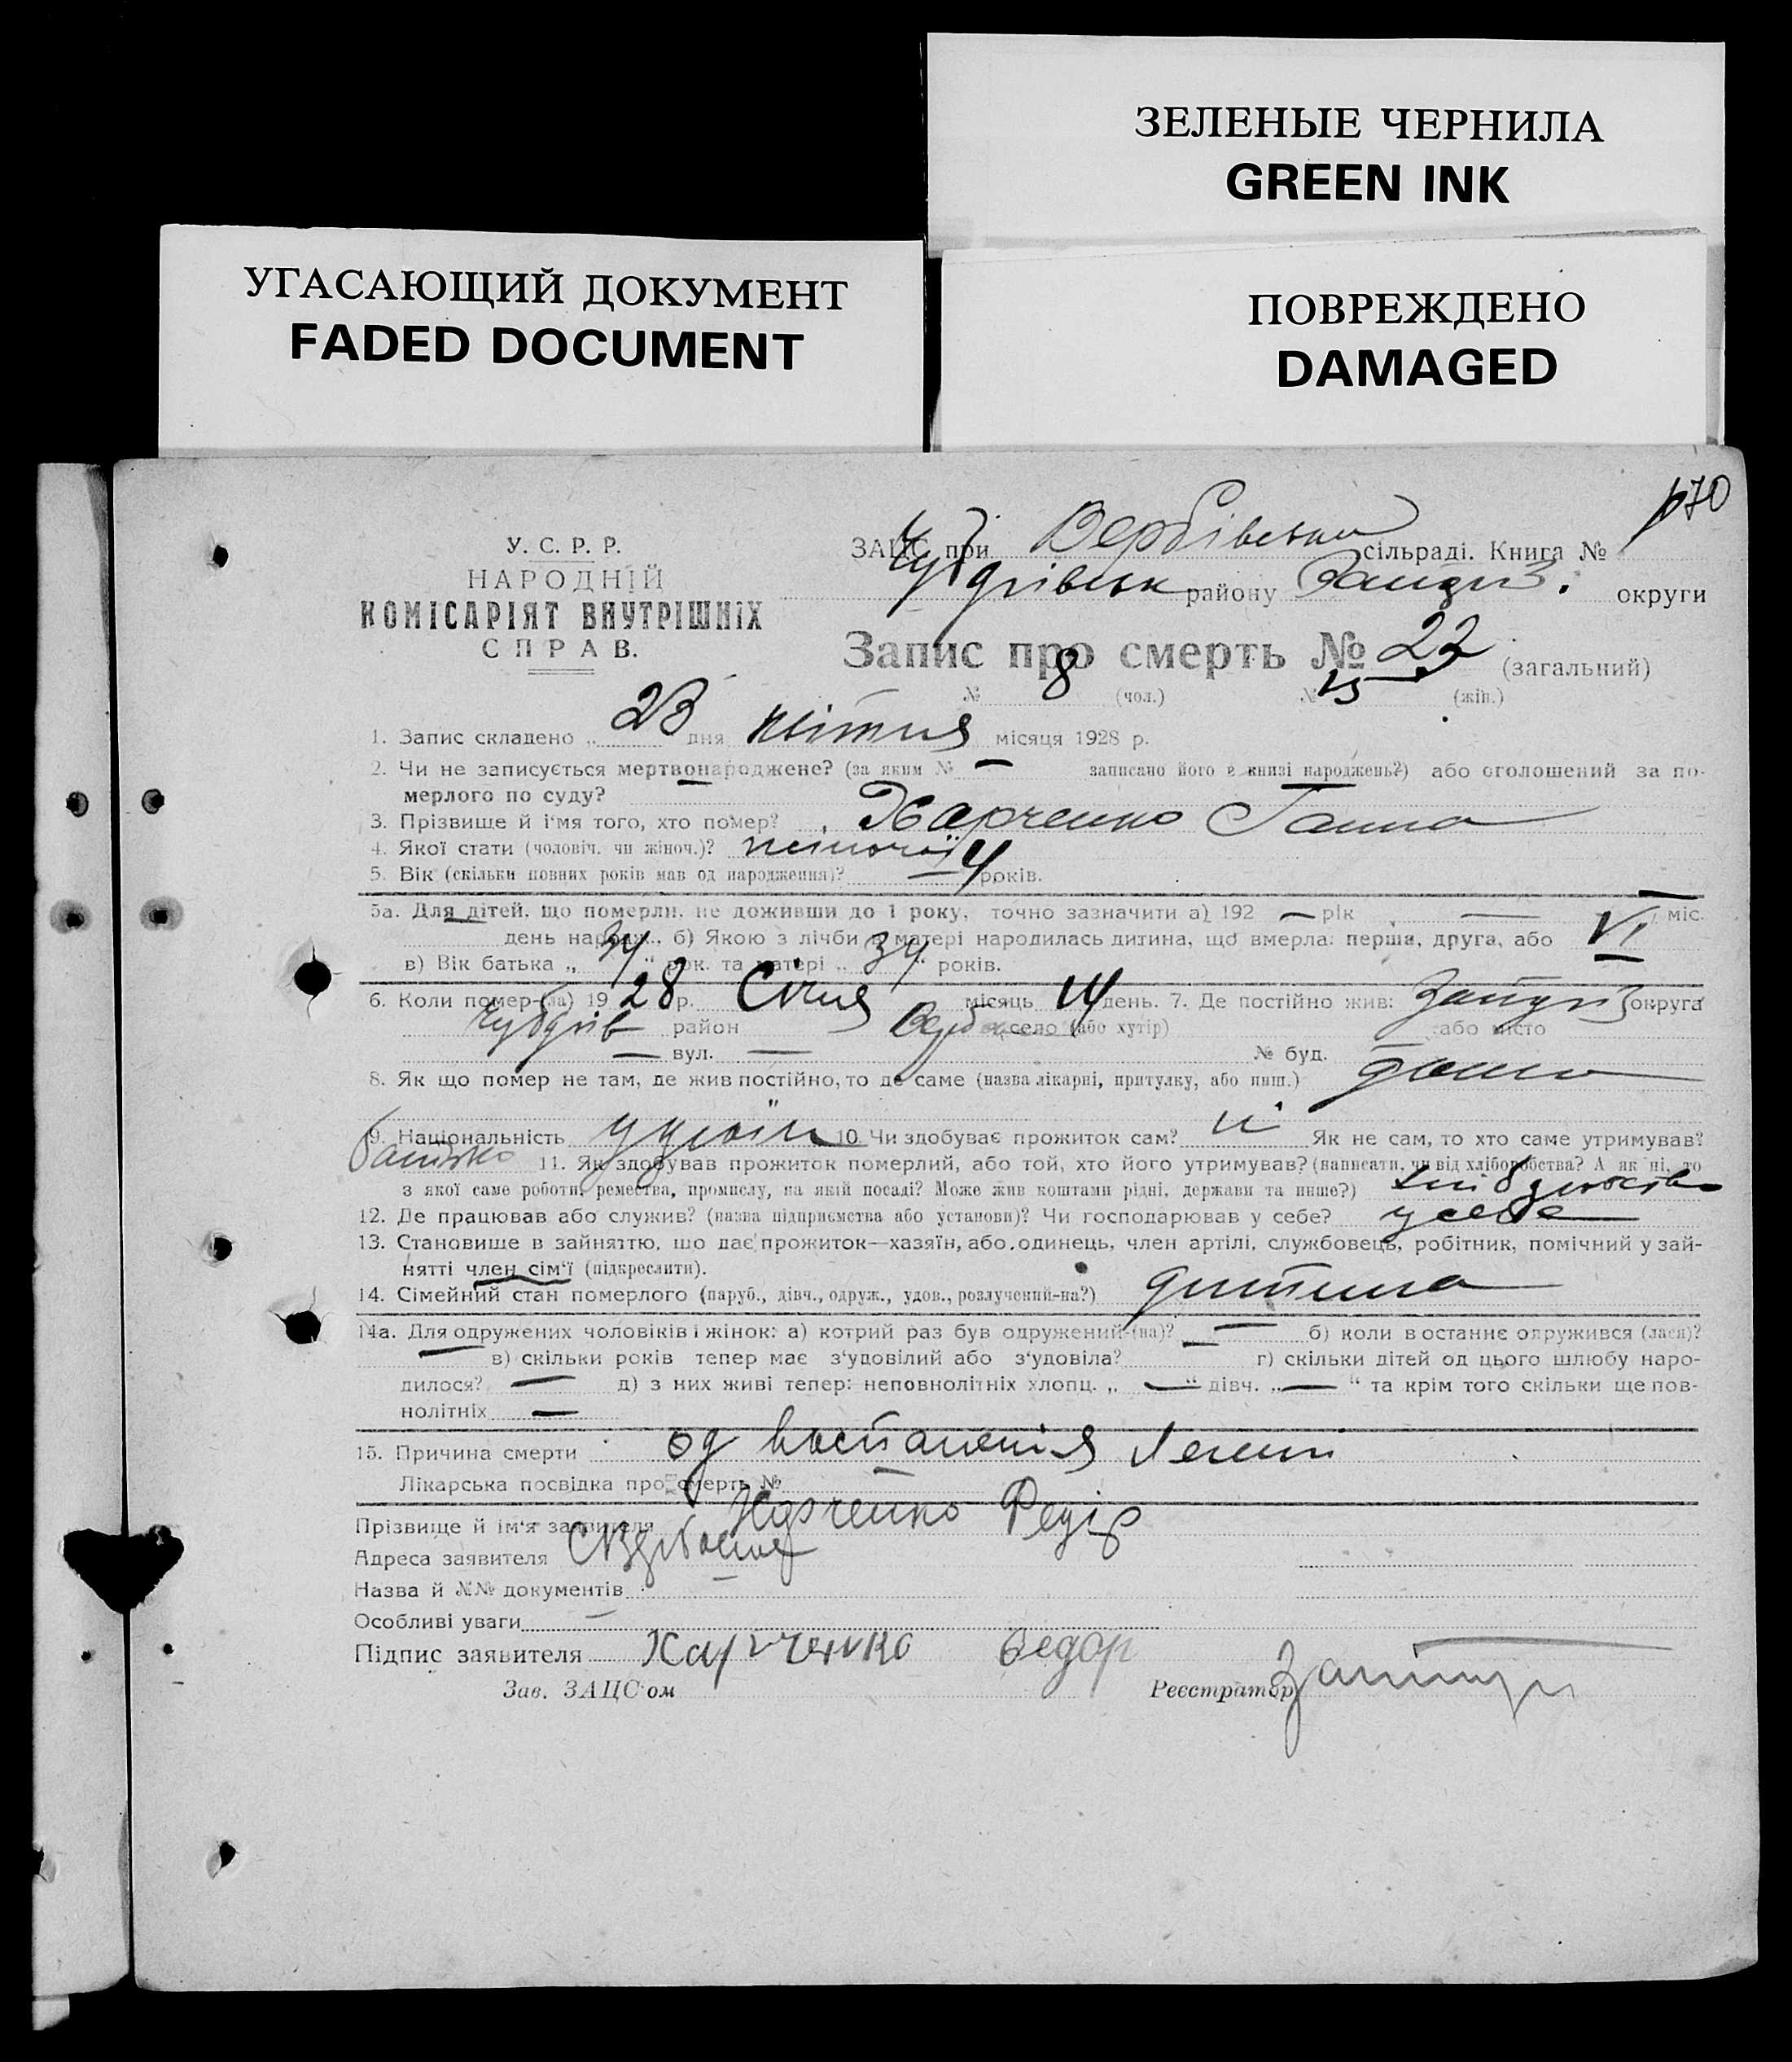 ЗЕЛЕНЫЕ ЧЕРНИЛА
GREEN INK
УГАСАЮЩИЙ ДОКУМЕНТ
FADED DOCUMENT
ПОВРЕЖДЕНО
DAMAGED
170
У. С. Р. Р.
НАРОДНІЙ
КОМІСАРІЯТ ВНУТРІШНІХ
СПРАВ.
ЗАЦС при Вербівська сільраді. Книга №
району округи
Запис про смерть № 22 (загальний)
№ 8 (чол.) № 15 (жін.)
1. Запис складено „ 23 дня квітня місяця 1928 р.
2. Чи не записується мертвонароджене? (за яким № — записано його в книзі народжень?) або оголошений за по-
мерлого по суду?
3. Прізвище й ім'я того, хто помер? Харченко Ганна
4. Якої стати (чоловіч. чи жіноч.)? жіночої
5. Вік (скільки повних років мав од народження)? 4 років.
5а. Для дітей, що померли, не доживши до 1 року, точно зазначити а) 192 — рік — міс.
день народж., б) Якою з лічби в матері народилась дитина, що вмерла: перша, друга, або VI
в) Вік батька „ 34 “ рок. та матері „ 34 “ років.
6. Коли помер-(ла) 19 28 р. Січня місяць 14 день. 7. Де постійно жив: Запоріз округа
район Верба село (або хутір) або місто
— вул. — № буд. —
8. Як що помер не там, де жив постійно, то де саме (назва лікарні, притулку, або инш.) дома
9. Національність україн 10. Чи здобуває прожиток сам? ні Як не сам, то хто саме утримував?
батько 11. Як здобував прожиток померлий, або той, хто його утримував? (написати, чи від хліборобства? А як ні, то
з якої саме роботи, ремества, промислу, на якій посаді? Може жив коштами рідні, держави та инше?) хліборобство
12. Де працював або служив? (назва підприємства або установи)? Чи господарював у себе? у себе
13. Становище в зайняттю, що дає прожиток—хазяїн, або одинець, член артілі, службовець, робітник, помічний у зай-
нятті член сім'ї (підкреслити).
14. Сімейний стан померлого (паруб., дівч., одруж., удов., розлучений-на?) дитина
14а. Для одружених чоловіків і жінок: а) котрий раз був одружений-(на)? — б) коли востаннє одружився (лася)?
— в) скільки років тепер має з'удовілий або з'удовіла? — г) скільки дітей од цього шлюбу наро-
дилося? — д) з них живі тепер: неповнолітніх хлопц. „ — “ дівч. „ — “ та крім того скільки ще пов-
нолітніх —
15. Причина смерти од воспаленія легені
Лікарська посвідка про смерть № —
Прізвище й ім'я заявителя Харченко Федір
Адреса заявителя
Назва й №№ документів —
Особливі уваги —
Підпис заявителя Харченко Федор
Зав. ЗАЦС'ом Реєстратор